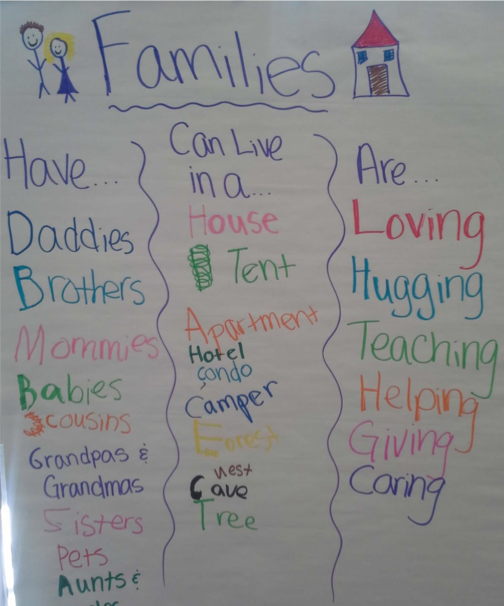 Families
Have...
Daddies
Brothers
Mommies
Babies
cousins
Grandpas &
Grandmas
Sisters
Pets
Aunts &
Can Live
in a...
House
Tent
Apartment
Hotel
Condo
Camper
Forest
nest
Cave
Tree
Are...
Loving
Hugging
Teaching
Helping
Giving
Caring